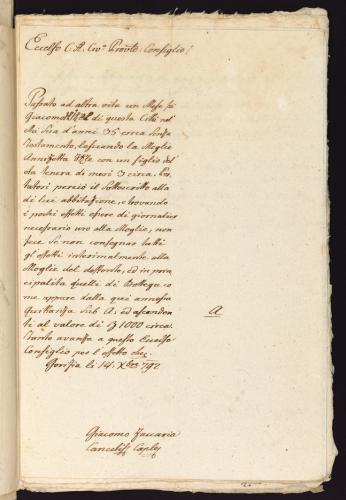 Eccelso C. R. Civ.º Prov.le Consiglio!
Passato ad altra vita un Mese fa
Giacomo di questa Città nel
età sua d'anni 35 circa senza
testamento, lasciando la Moglie
Annizetta con un figlio del
età tenera di mesi 3 circa. Por
tatosi perciò il sottoscritto alla
di lui abbitazione, e trovando
i pochi effetti essere di giornalier
necessario uso alla Moglie, non
fece se non consegnar tutti
gl'effetti interinalmente alla
Moglie del deffonto, ed in prin
cipalità quelli di Bottega co
me appare dalla qui annessa
Quittanza sub A; ed ascenden
ti al valore di f 1000 circa.
Tanto avanza a questo Eccelso
Consiglio per l'effetto etc.
Gorizia li 14. Xbre 792
A
Giacomo Zaccaria
Cancell